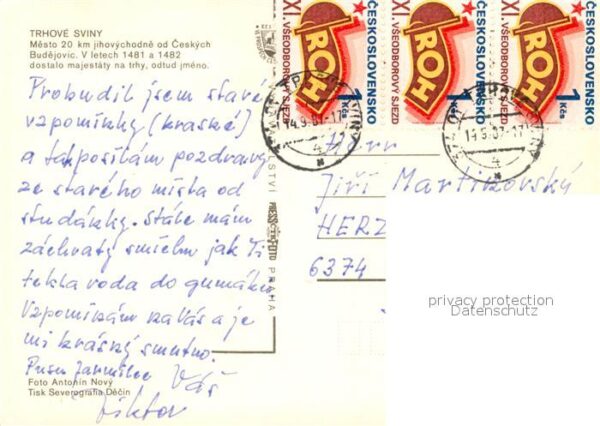 TRHOVÉ SVINY
Město 20 km jihovýchodně od Českých
Budějovic. V letech 1481 a 1482
dostalo majestáty na trhy, odtud jméno.
Probudil jsem staré
vzpomínky (krásné)
a tak posílám pozdravy
ze starého místa od
studánky. Stále mám
záchvaty smíchu jak Ti
tekla voda do gumáků
Vzpomínám na Vás a je
mi krásný smutno.
Pusu Jarmilce Váš
Viktor
Foto Antonín Nový
Tisk Severografia Děčín
PRESSFOTO PRAHA
XI. VŠEODBOROVÝ SJEZD
ROH
1 Kčs
ČESKOSLOVENSKO
XI. VŠEODBOROVÝ SJEZD
ROH
1 Kčs
ČESKOSLOVENSKO
XI. VŠEODBOROVÝ SJEZD
ROH
1 Kčs
ČESKOSLOVENSKO
14.9.87-17
14.9.87-17
Herr
Jiří Martinovský
HERZ
6374
privacy protection
Datenschutz